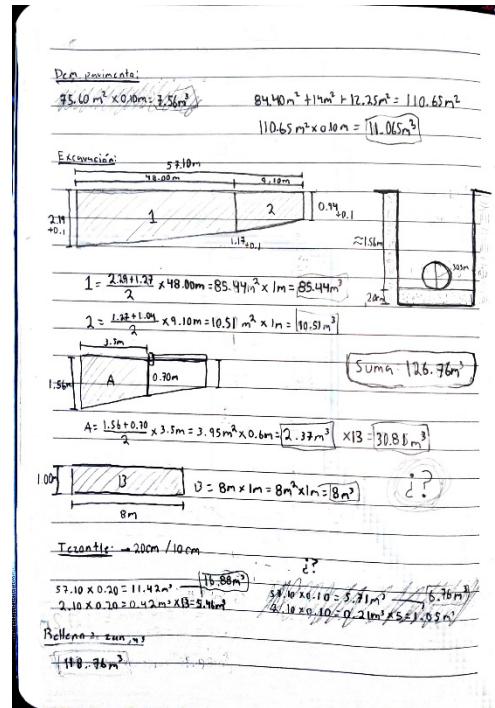 Dem. pavimento:
75.60 m² x 0.10m = 7.56m³
84.40m² + 14m² + 12.25m² = 110.65m²
110.65m² x 0.10m = 11.065m³
Excavación:
57.10m
48.00m 9.10m
2.19 +0.1
1
2
0.94 +0.1
1.17 +0.1
≈1.56m
1 = 2.29+1.27 / 2 x 48.00m = 85.44m² x 1m = 85.44m³
2 = 1.27+1.04 / 2 x 9.10m = 10.51 m² x 1m = 10.51m³
3.5m
1.56m
A
0.70m
Suma: 126.76m³
A = 1.56+0.70 / 2 x 3.5m = 3.95m² x 0.6m = 2.37m³ x13 = 30.81m³
1.00m
B
B = 8m x 1m = 8m² x 1m = 8m³
¿?
8m
Tezontle: → 20cm / 10cm
¿?
57.10 x 0.20 = 11.42m³
16.88m³
2.10 x 0.20 = 0.42m³ x13 = 5.46m³
57.10 x 0.10 = 5.71m³
6.76m³
2.10 x 0.10 = 0.21m³ x 5 = 1.05m³
118.76m³